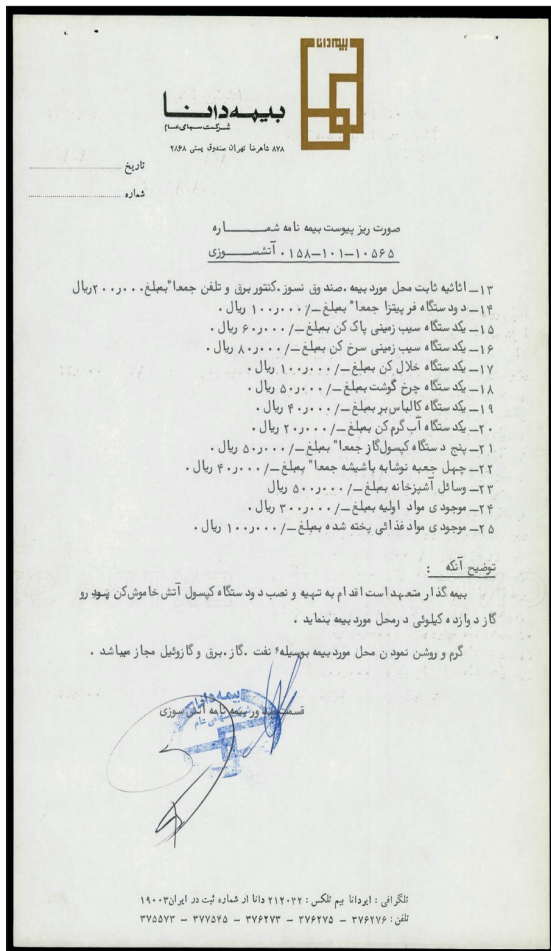 بیمه دانا
بیمه دانا
شرکت سهامی عام
۸۷۸ شاهرضا تهران صندوق پستی ۲۸۶۸
تاریخ
شماره
صورت ریز پیوست بیمه نامه شماره
۰۱۵۸-۱۰۱-۱۰۵۶۵ آتشسوزی
۱۳- اثاثیه ثابت محل مورد بیمه، صندوق نسوز، کنتور برق و تلفن جمعا" بمبلغ ۲۰۰ر۰۰۰ ریال
۱۴- دودستگاه فر پیتزا جمعا" بمبلغ -/۱۰۰ر۰۰۰ ریال .
۱۵- یکدستگاه سیب زمینی پاک کن بمبلغ -/۶۰ر۰۰۰ ریال .
۱۶- یکدستگاه سیب زمینی سرخ کن بمبلغ -/۸۰ر۰۰۰ ریال .
۱۷- یکدستگاه خلال کن بمبلغ -/۱۰۰ر۰۰۰ ریال .
۱۸- یکدستگاه چرخ گوشت بمبلغ -/۵۰ر۰۰۰ ریال .
۱۹- یکدستگاه کالباس بر بمبلغ -/۴۰ر۰۰۰ ریال .
۲۰- یکدستگاه آب گرم کن بمبلغ -/۲۰ر۰۰۰ ریال .
۲۱- پنج دستگاه کپسول گاز جمعا" بمبلغ -/۵۰ر۰۰۰ ریال .
۲۲- چهل جعبه نوشابه باشیشه جمعا" بمبلغ -/۴۰ر۰۰۰ ریال .
۲۳- وسائل آشپزخانه بمبلغ -/۵۰۰ر۰۰۰ ریال
۲۴- موجودی مواد اولیه بمبلغ -/۳۰۰ر۰۰۰ ریال .
۲۵- موجودی مواد غذائی پخته شده بمبلغ -/۱۰۰ر۰۰۰ ریال .
توضیح آنکه :
بیمه گذار متعهد است اقدام به تهیه و نصب دودستگاه کپسول آتش خاموش کن پودر و
گاز دوازده کیلوئی درمحل مورد بیمه بنماید .
گرم و روشن نمودن محل مورد بیمه بوسیله‌ء نفت ،گاز، برق و گازوئیل مجاز میباشد .
بیمه دانا
قسمت صدور بیمه نامه آتش سوزی
سهامی عام
تلگرافی : ایردانا بیم تلکس : ۲۱۲۰۳۲ دانا ار شماره ثبت در ایران ۱۹۰۰۳
تلفن : ۳۷۶۲۷۶ - ۳۷۶۲۷۵ - ۳۷۶۲۷۳ - ۳۷۷۵۴۵ - ۳۷۵۵۷۳